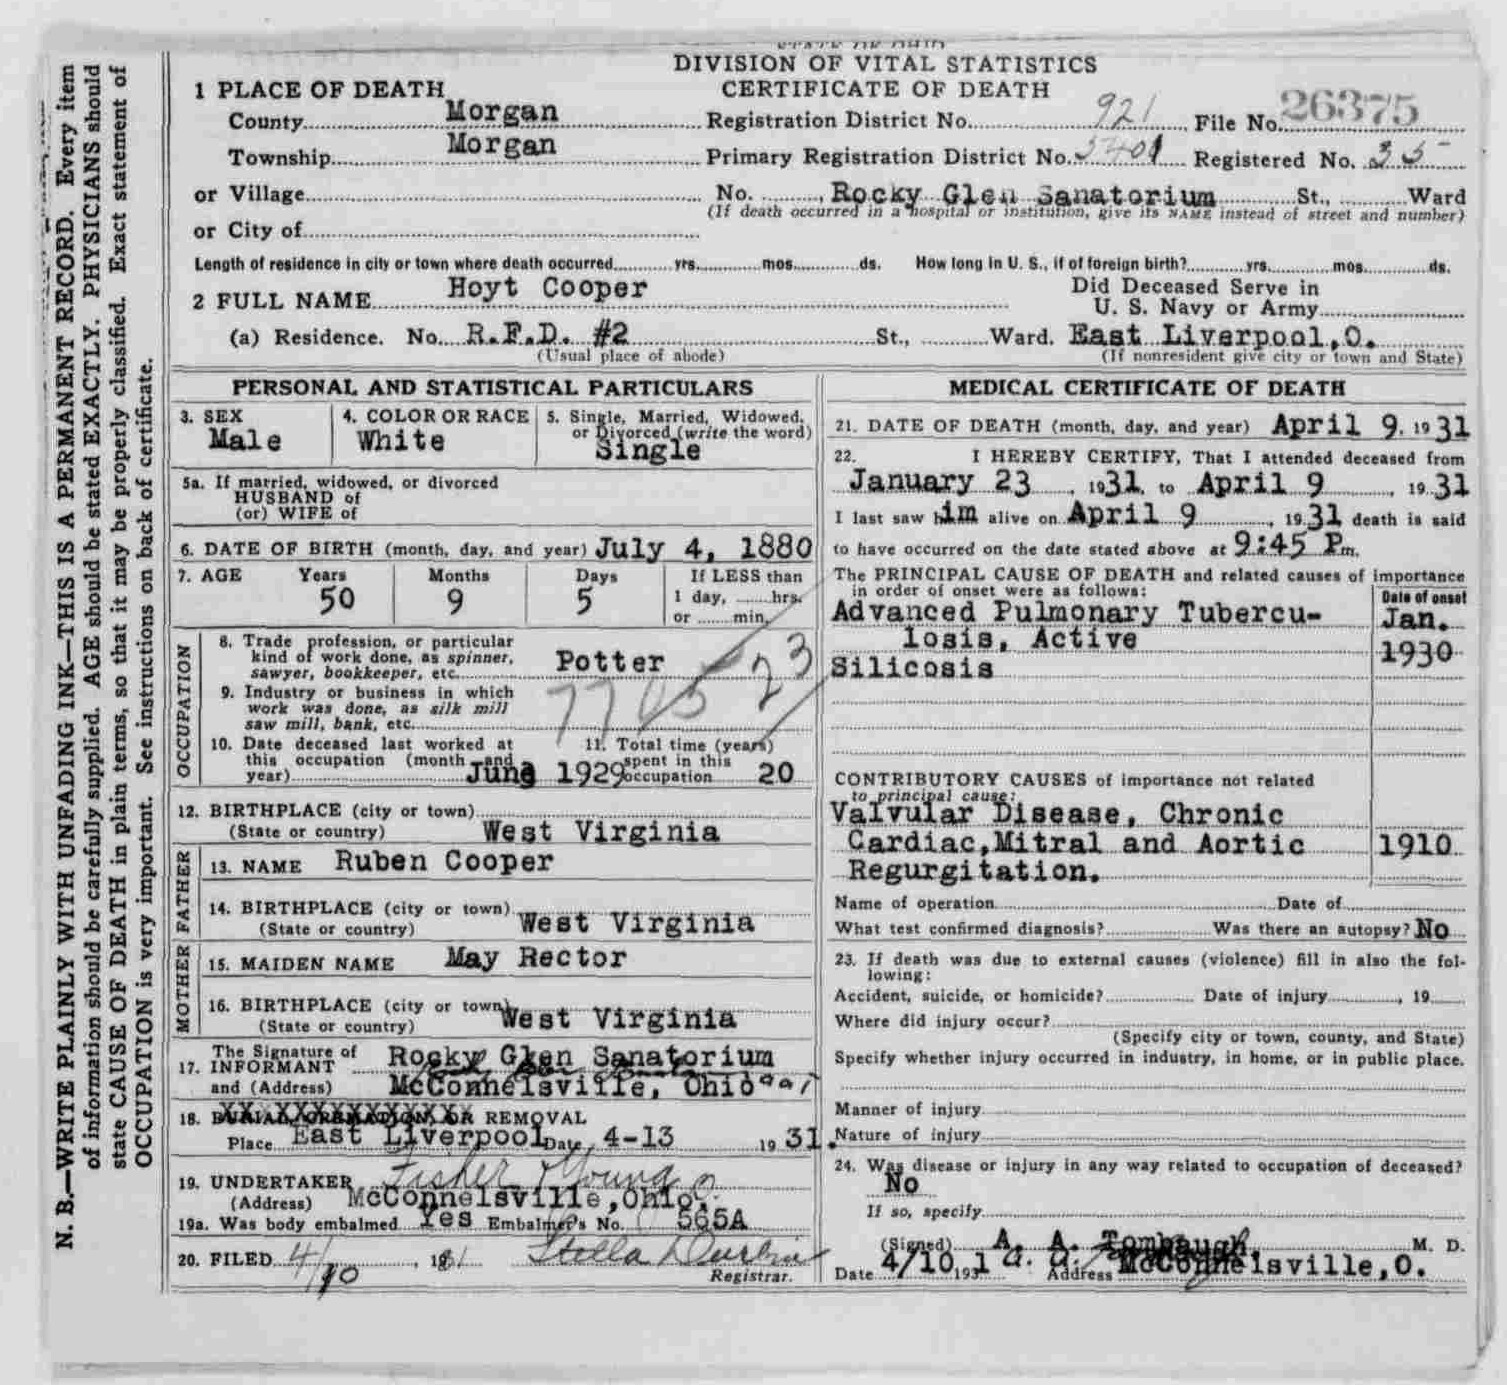 DIVISION OF VITAL STATISTICS
CERTIFICATE OF DEATH
1 PLACE OF DEATH
County Morgan Registration District No. 921 File No. 26375
Township Morgan Primary Registration District No. 3401 Registered No. 35
or Village No. , Rocky Glen Sanatorium St., Ward
(If death occurred in a hospital or institution, give its NAME instead of street and number)
or City of
Length of residence in city or town where death occurred yrs. mos. ds. How long in U. S., if of foreign birth? yrs. mos. ds.
2 FULL NAME Hoyt Cooper Did Deceased Serve in
U. S. Navy or Army
(a) Residence. No. R.F.D. #2 St., Ward. East Liverpool,O.
(Usual place of abode) (If nonresident give city or town and State)
PERSONAL AND STATISTICAL PARTICULARS
3. SEX 4. COLOR OR RACE 5. Single, Married, Widowed,
or Divorced (write the word)
Male White Single
5a. If married, widowed, or divorced
HUSBAND of
(or) WIFE of
6. DATE OF BIRTH (month, day, and year) July 4, 1880
7. AGE Years Months Days If LESS than
50 9 5 1 day, hrs.
or min.
OCCUPATION
8. Trade profession, or particular
kind of work done, as spinner,
sawyer, bookkeeper, etc. Potter
23
9. Industry or business in which
work was done, as silk mill
saw mill, bank, etc.
10. Date deceased last worked at
this occupation (month and
year) June 1929
11. Total time (years)
spent in this
occupation 20
12. BIRTHPLACE (city or town)
(State or country) West Virginia
FATHER
13. NAME Ruben Cooper
14. BIRTHPLACE (city or town)
(State or country) West Virginia
MOTHER
15. MAIDEN NAME May Rector
16. BIRTHPLACE (city or town)
(State or country) West Virginia
17. The Signature of
INFORMANT Rocky Glen Sanatorium
and (Address) McConnelsville, Ohio
18. BURIAL, CREMATION, OR REMOVAL
Place East Liverpool Date 4-13 19 31.
19. UNDERTAKER Fisher & Young
(Address) McConnelsville,Ohio.
19a. Was body embalmed Yes Embalmer's No. 565A
20. FILED 4/10, 1931 Stella Durbin
Registrar.
MEDICAL CERTIFICATE OF DEATH
21. DATE OF DEATH (month, day, and year) April 9, 19 31
22. I HEREBY CERTIFY, That I attended deceased from
January 23, 1931, to April 9, 19 31
I last saw him alive on April 9, 19 31 death is said
to have occurred on the date stated above at 9:45 Pm.
The PRINCIPAL CAUSE OF DEATH and related causes of importance
in order of onset were as follows: Date of onset
Advanced Pulmonary Tubercu- Jan.
losis, Active 1930
Silicosis
CONTRIBUTORY CAUSES of importance not related
to principal cause:
Valvular Disease, Chronic
Cardiac,Mitral and Aortic 1910
Regurgitation.
Name of operation Date of
What test confirmed diagnosis? Was there an autopsy? No
23. If death was due to external causes (violence) fill in also the fol-
lowing:
Accident, suicide, or homicide? Date of injury , 19
Where did injury occur?
(Specify city or town, county, and State)
Specify whether injury occurred in industry, in home, or in public place.
Manner of injury
Nature of injury
24. Was disease or injury in any way related to occupation of deceased?
No
If so, specify
(Signed) A. A. Tombaugh, M. D.
Date 4/10 1931 Address McConnelsville,O.
N. B.—WRITE PLAINLY WITH UNFADING INK—THIS IS A PERMANENT RECORD. Every item
of information should be carefully supplied. AGE should be stated EXACTLY. PHYSICIANS should
state CAUSE OF DEATH in plain terms, so that it may be properly classified. Exact statement of
OCCUPATION is very important. See instructions on back of certificate.